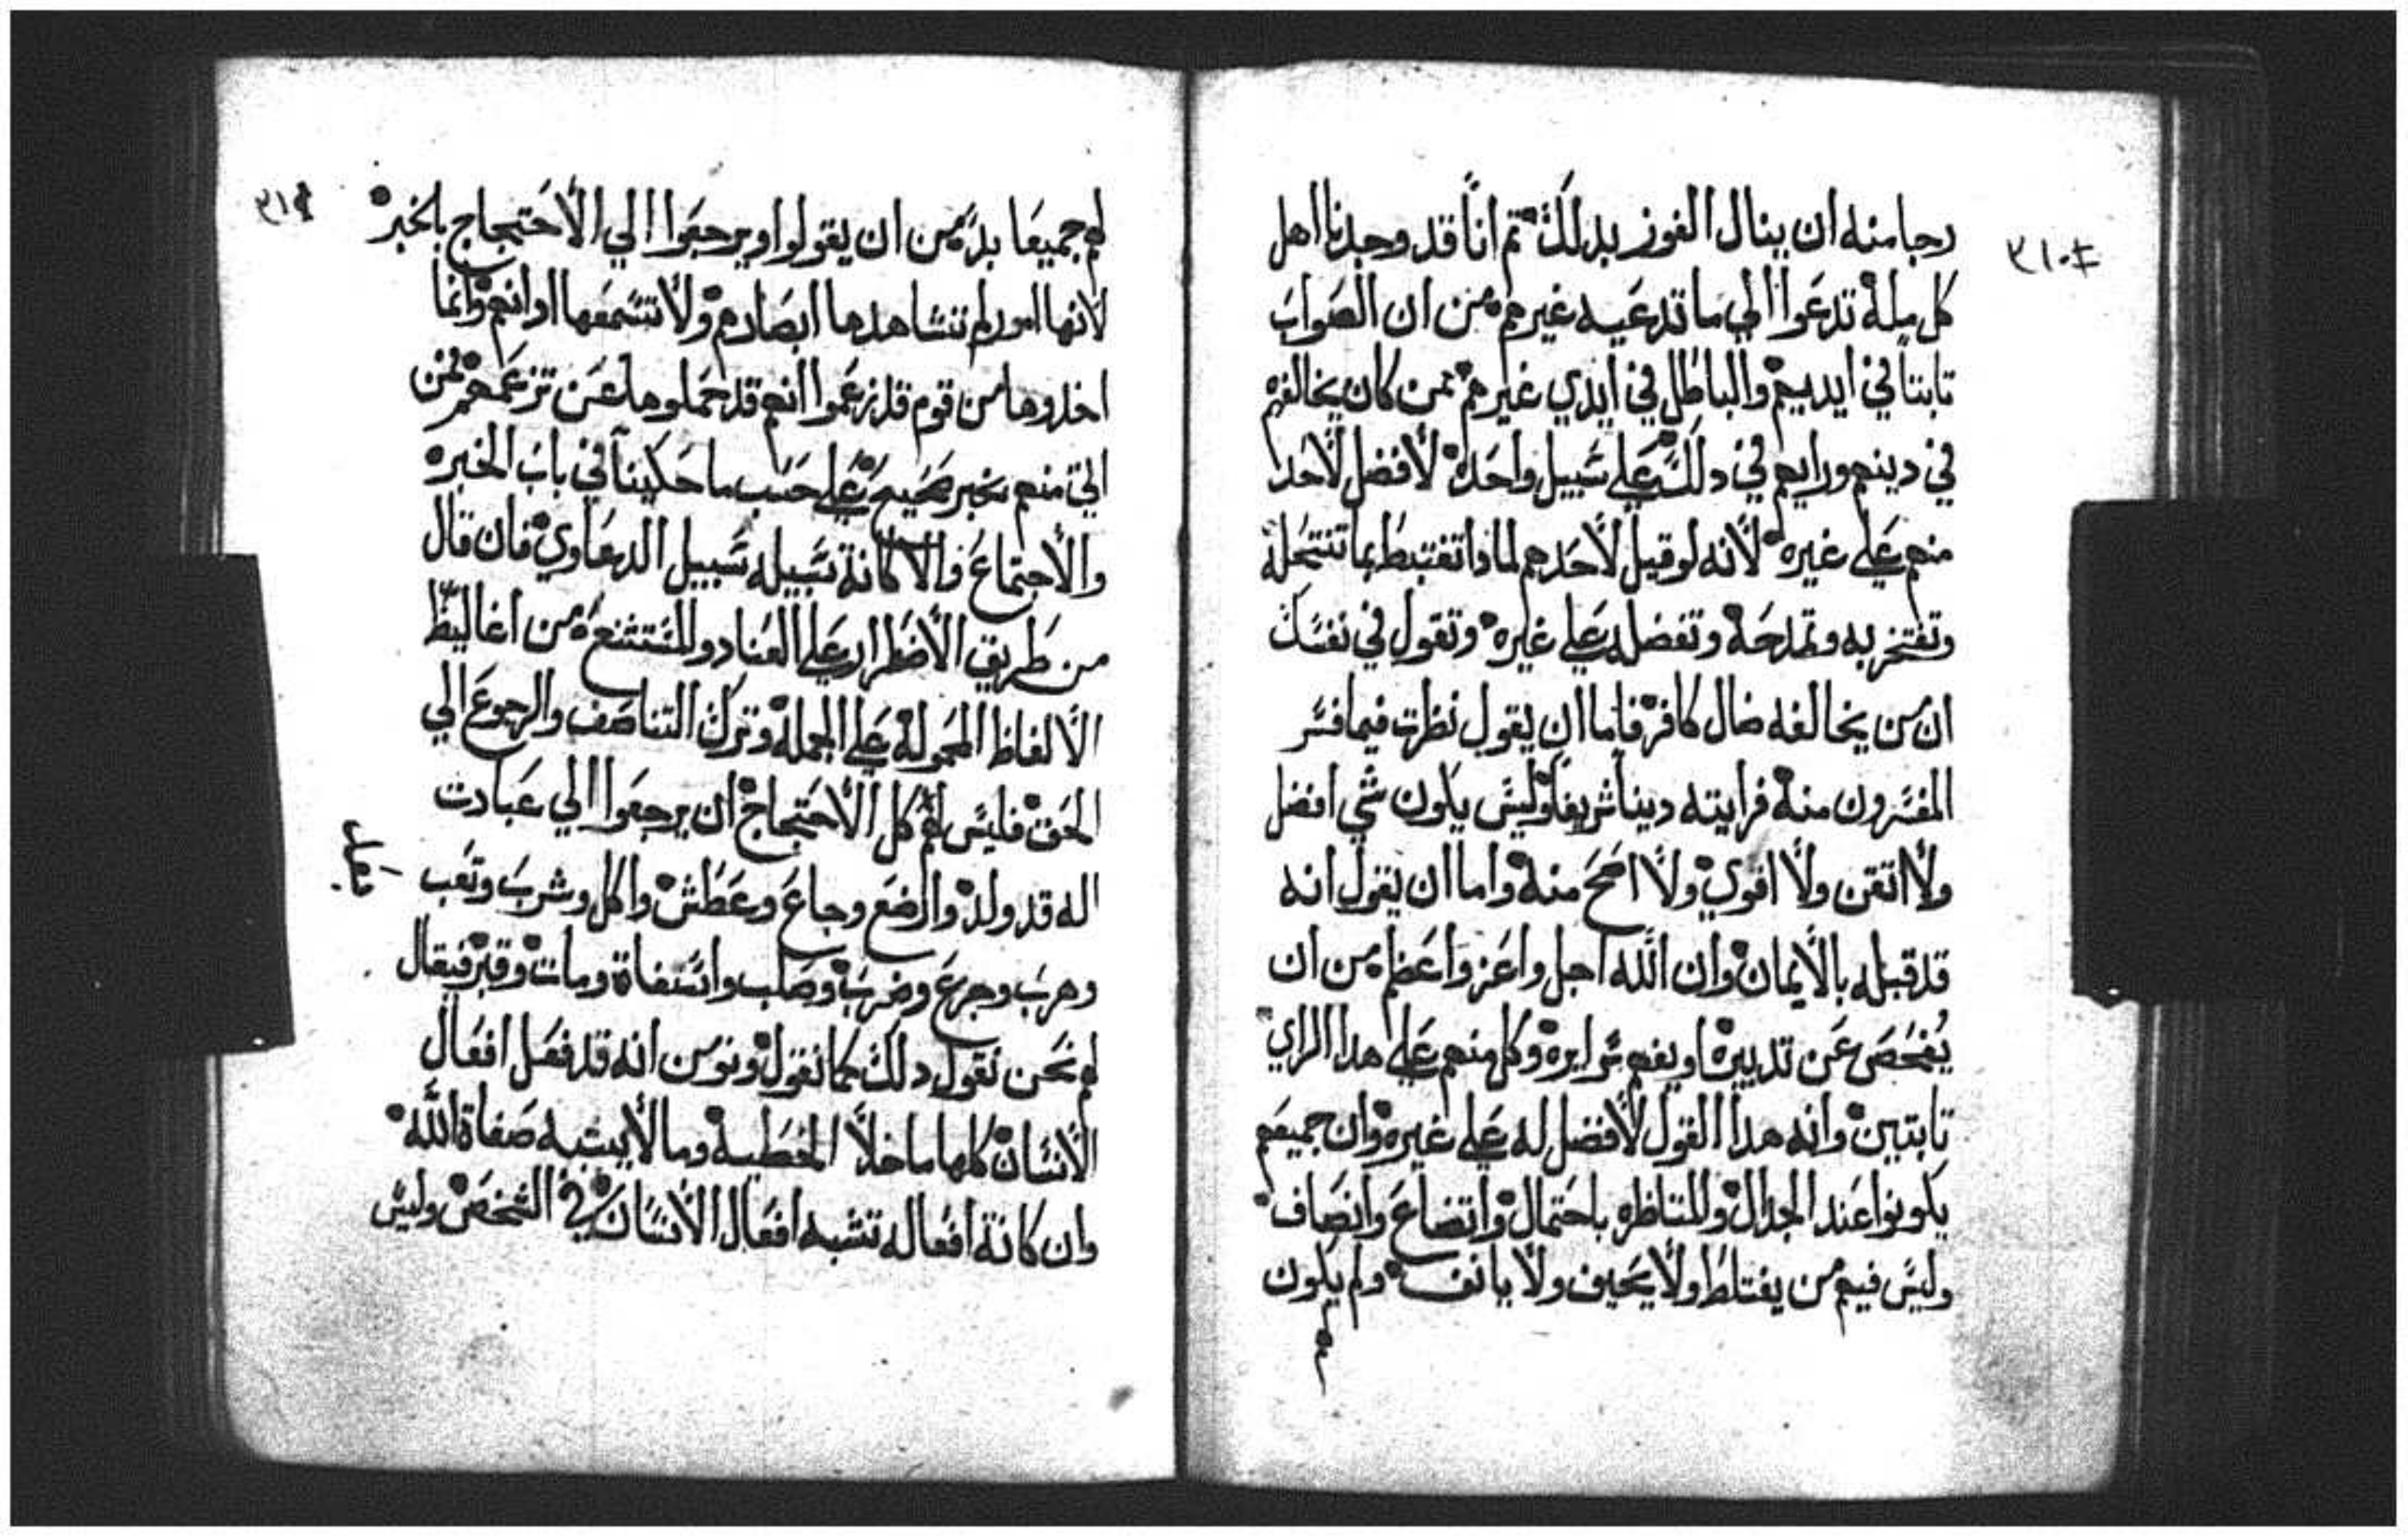 ٣١٠
رجا منه ان ينال الفوز بدلك ثم انا قد وجدنا اهل
كل مله تدعوا الي ما تدعيه غيرهم من ان الصواب
تابتا في ايديهم والباطل في ايدي غيرهم ممن كان يخالفهم
في دينهم ورايهم في دلك علي سبيل واحده لا فضل لاحدا
منهم علي غيره لانه لو قيل لاحدهم لمادا تغتبط بما تنتحله
وتفتخر به وتمدحه وتفضله علي غيره وتقول في نفسك
ان من يخالفه ضال كافر فاما ان يقول نظرت فيما فسر
المفسرون منه فرايته دينا شريفا وليس يكون شي افضل
ولا اتقن ولا اقوي ولا اصح منه واما ان يقول انه
قد قبله بالايمان وان الله اجل واعز واعظم من ان
يفحص عن تدبيره او يفهم سرايره وكل منهم علي هدا الراي
تابتين وانه هدا القول لا فضل له علي غيره وان جميعهم
يكونوا عند الجدال والمناظره باحتمال واتضاع وانصاف
وليس فيهم من يغتلط ولا يحيف ولا يانف ولم يكون
٣١١
لهم جميعا بد من ان يقولوا ويرجعوا الي الاحتجاج بالخبر
لانها امور لم تشاهدها ابصارهم ولا تسمعها ادانهم وانما
اخدوها من قوم قد زعموا انهم قد حملوها عن تزعمهم فمن
اتي منهم بخبر صحيح علي حسب ما حكينا في باب الخبره
والاجتماع والا كانة سبيله سبيل الدعاوي فان قال
من طريق الاضطرار علي العناد والتشنع من اغاليظ
الالفاظ المحموله علي الجمله وترك التناصف والرجوع الي
الحق فليس لهم كل الاحتجاج ان يرجعوا الي عبادت
اله قد ولد والرضع وجاع وعطش واكل وشرب وتعب
وهرب وجزع وضرب وصلب واستغاة ومات وقبر فيقال
لهم نحن نقول دلك كما نقول ونومن انه قد فعل افعال
الانسان كلها ما خلا الخطيه وما لا يشبه صفاة الله
وان كانة افعاله تشبه افعال الانسان في الشخص وليس